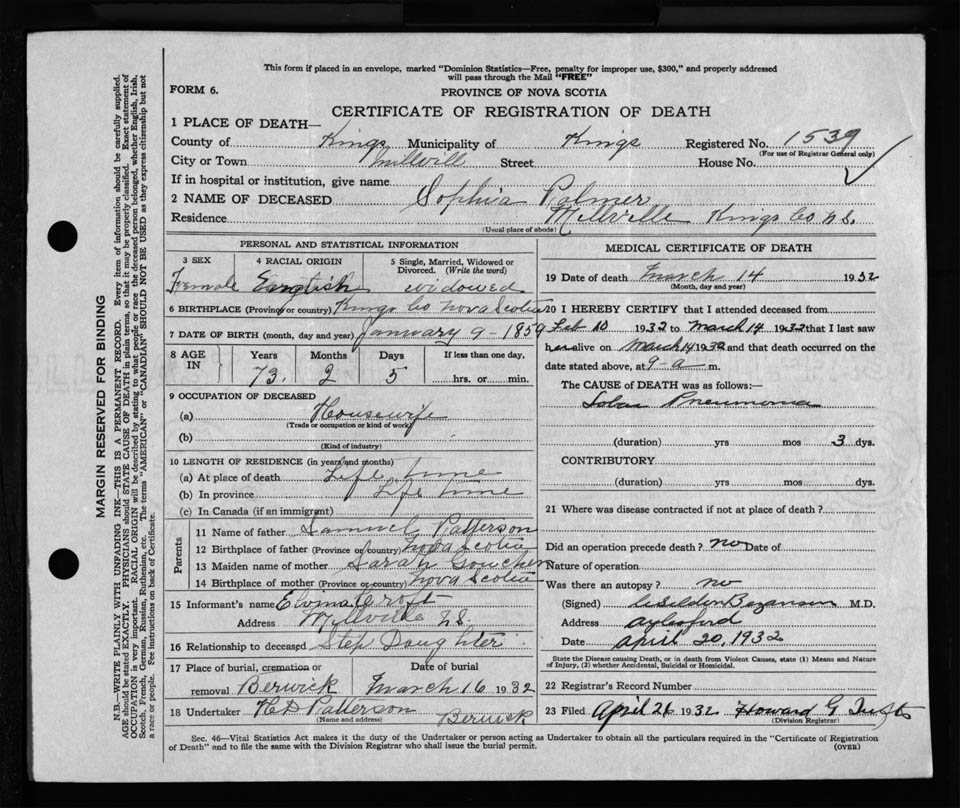 This form if placed in an envelope, marked "Dominion Statistics—Free, penalty for improper use, $300," and properly addressed
will pass through the Mail "FREE"
FORM 6.
PROVINCE OF NOVA SCOTIA
CERTIFICATE OF REGISTRATION OF DEATH
1 PLACE OF DEATH—
County of Kings Municipality of Kings Registered No. 1539
(For use of Registrar General only)
City or Town Millvill Street House No.
If in hospital or institution, give name
2 NAME OF DECEASED Sophia Palmer
Residence Millville Kings Co N.S.
(Usual place of abode)
PERSONAL AND STATISTICAL INFORMATION
3 SEX 4 RACIAL ORIGIN 5 Single, Married, Widowed or Divorced. (Write the word)
Female English widowed
6 BIRTHPLACE (Province or country) Kings Co Nova Scotia
7 DATE OF BIRTH (month, day and year) January 9-1859
8 AGE IN Years Months Days If less than one day,
73 2 5 hrs. or min.
9 OCCUPATION OF DECEASED
(a) Housewife
(Trade or occupation or kind of work)
(b)
(Kind of industry)
10 LENGTH OF RESIDENCE (in years and months)
(a) At place of death Life time
(b) In province Life time
(c) In Canada (if an immigrant)
Parents
11 Name of father Samuel Patterson
12 Birthplace of father (Province or country) Nova Scotia
13 Maiden name of mother Sarah Goucher
14 Birthplace of mother (Province or country) Nova Scotia
15 Informant's name Croft
Address Millville N.S.
16 Relationship to deceased Step Daughter
17 Place of burial, cremation or removal Date of burial
Berwick March 16 1932
18 Undertaker H D Patterson Berwick
(Name and address)
MEDICAL CERTIFICATE OF DEATH
19 Date of death March 14 1932
(Month, day and year)
20 I HEREBY CERTIFY that I attended deceased from
Feb 10 1932 to March 14 1932 that I last saw
her alive on March 14 1932 and that death occurred on the
date stated above, at 9-a m.
The CAUSE of DEATH was as follows:—
Lobar Pneumonia
(duration) yrs mos 3 dys.
CONTRIBUTORY
(duration) yrs mos dys.
21 Where was disease contracted if not at place of death?
Did an operation precede death? no Date of
Nature of operation
Was there an autopsy? no
(Signed) Bezanson M.D.
Address Aylesford
Date April 20, 1932
State the Disease causing Death, or in death from Violent Causes, state (1) Means and Nature
of Injury, (2) whether Accidental, Suicidal or Homicidal.
22 Registrar's Record Number
23 Filed April 26 1932 Howard G
(Division Registrar)
Sec. 46—Vital Statistics Act makes it the duty of the Undertaker or person acting as Undertaker to obtain all the particulars required in the "Certificate of Registration
of Death" and to file the same with the Division Registrar who shall issue the burial permit.
(OVER)
MARGIN RESERVED FOR BINDING
N.B.—WRITE PLAINLY WITH UNFADING INK—THIS IS A PERMANENT RECORD. Every item of information should be carefully supplied.
AGE should be stated EXACTLY. PHYSICIANS should STATE CAUSE OF DEATH in plain terms, so that it may be properly classified. Exact statement of
OCCUPATION is very important. RACIAL ORIGIN will be described by stating to what people or race the deceased person belonged, whether English, Irish,
Scotch, French, German, Russian, Ruthenian, etc. The terms "AMERICAN" or "CANADIAN" SHOULD NOT BE USED as they express citizenship but not
a race or people. See instructions on back of Certificate.